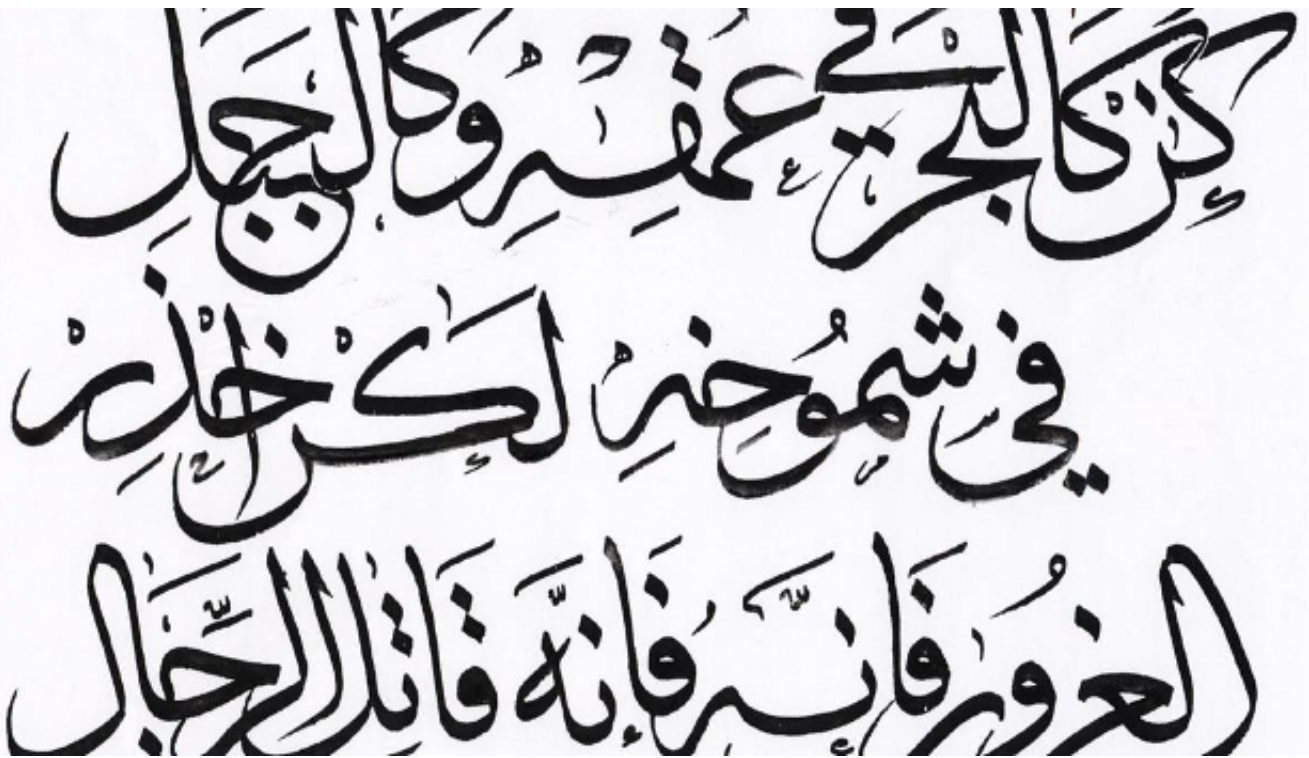 كُنْ كَالْبَحْرِ فِي عُمْقِهِ وَكَالْجَبَلِ
فِي شُمُوخِهِ لَكِنْ احْذَرْ
الغُرُورَ فَإِنَّهُ فَإِنَّهُ قَاتِلُ الرِّجَال